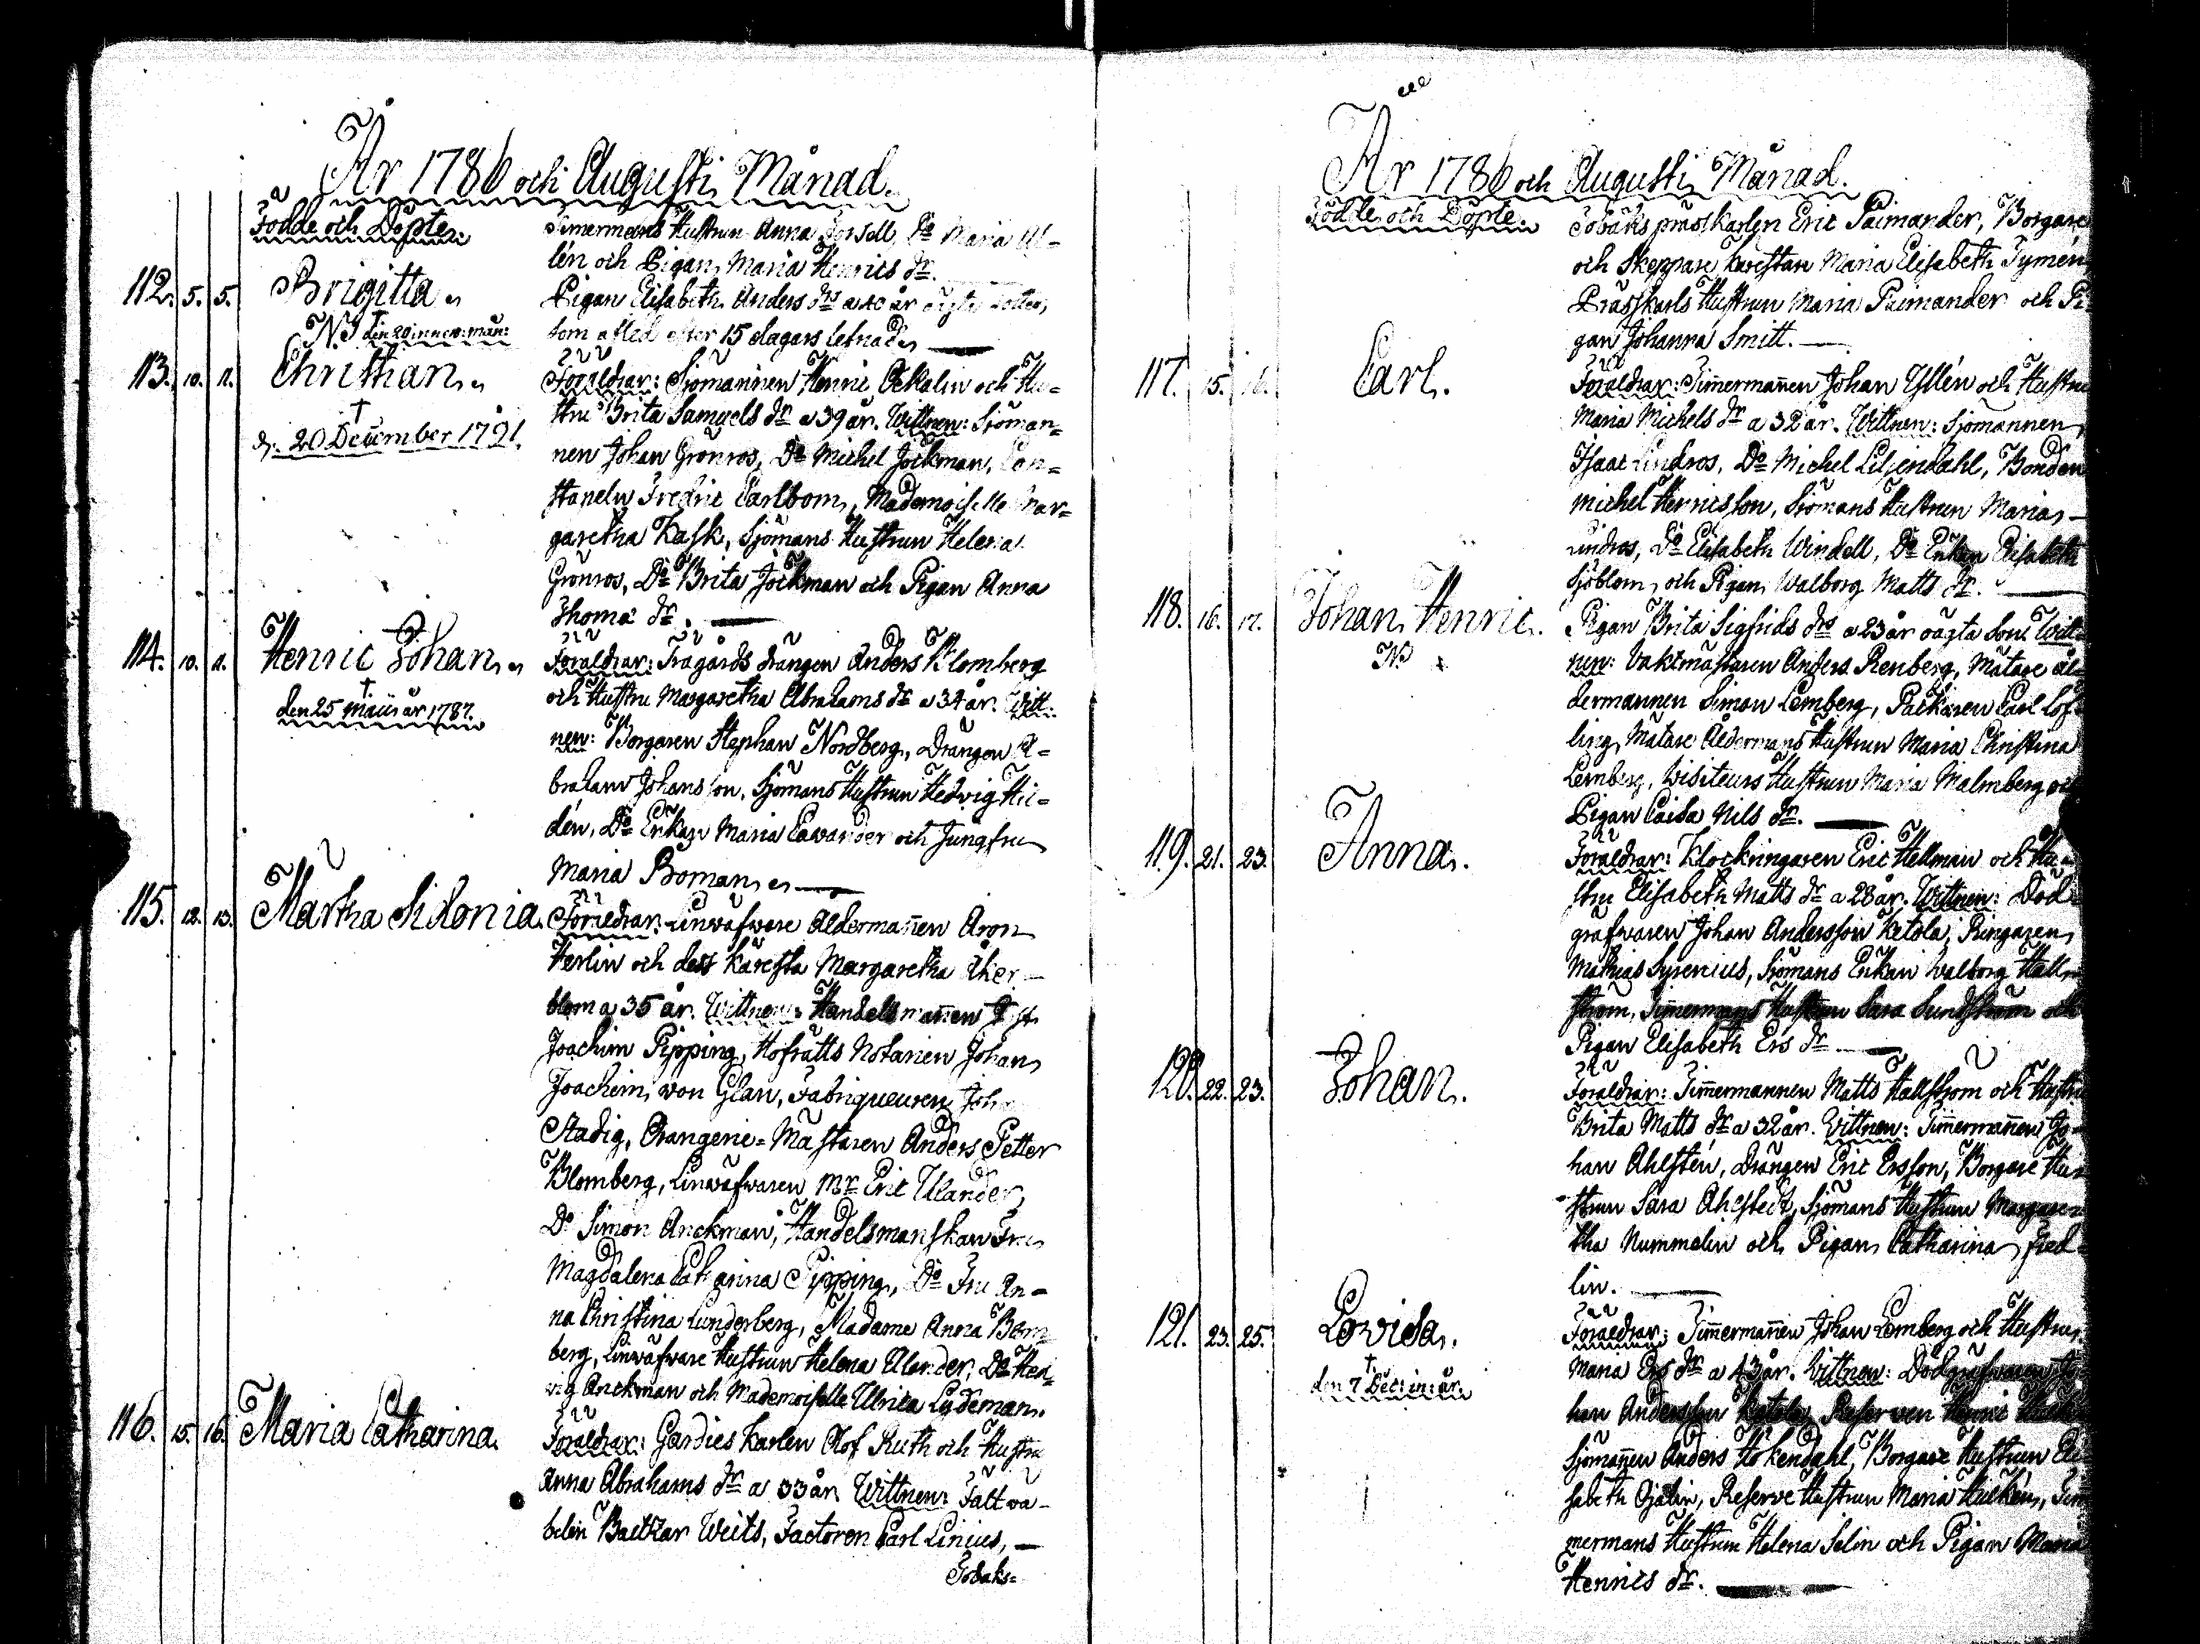 År 1786 och Augusti Månad.
Födde och Döpte.
Timermans Hustrun Anna Forsell, Do Maria Al=
lén och Pigan Maria Henrics dr.
112. 5. 5. Brigitta.
N.
den 20 i nnew: mån:
Pigan Elisabeth Anders drs a 40 år oägta dotter,
som afled efter 15 dagars lefnad.
113. 10. 11. Christian.
†
d. 20 December 1791.
Föräldrar: Sjömannen Henric Ockalin och Hu=
stru Brita Samuels dr a 39 år. Wittnen: Sjöman=
nen Johan Grönros, Do Michel Jöckman, Con=
stapeln Fredric Carlbom, Mademoiselle Mar=
garetha Kask, Sjömans Hustrun Helena
Grönros, Do Brita Jöckman och Pigan Anna
Thomæ dr.
114. 10. 11. Henric Johan.
†
den 25 Maii år 1787.
Föräldrar: Trägårds drängen Anders Klomberg
och Hustru Margaretha Abrahams dr a 34 år. Witt=
nen: Borgaren Stephan Nordberg, Drängen A=
braham Johansson, Sjömans Hustrun Hedvig Hil=
dén, Do Enkan Maria Cavander och Jungfru
Maria Boman.
115. 12. 13. Martha Sidonia.
Föräldrar: Linwäfware Åldermannen Aron
Herlin och dess Käresta Margaretha Åker=
blom a 35 år. Wittnen: Handelsmannen
Joachim Pipping, Hofrätts Notarien Johan
Joachim von Glan, Fabriqueuren Joh
Stadig, Orangerie=Mästaren Anders Petter
Blomberg, Linwäfwaren Mr Eric Ulander,
Do Simon Anckman, Handelsmanskan Fru
Magdalena Catharina Pipping, Do Fru An=
na Christina Lunderberg, Madame Anna Blom=
berg, Linwäfware Hustrun Helena Ulander, Do Hed=
vig Anckman och Mademoiselle Ulrica Lydeman.
116. 15. 16. Maria Catharina.
Föräldrar: Gardies Karlen Olof Ruth och Hustru
Anna Abrahams dr a 33 år. Wittnen: Fältwä=
beln Baltzar Weits, Factoren Carl Linius,
Tobaks=
År 1786 och Augusti Månad.
Födde och Döpte.
Tobaks präss karlen Eric Paimander, Borgare
och Skeppare Kärestan Maria Elisabeth Tymén
Prässkarls Hustrun Maria Paimander och Pi=
gan Johanna Smitt.
117. 15. 16. Carl.
Föräldrar: Timmermannen Johan Yllén och Hustru
Maria Michels dr a 32 år. Wittnen: Sjömannen
Isaac Lindros, Do Michel Liljendahl, Bonden
Michel Henricsson, Sjömans Hustrun Maria
Lindros, Do Elisabeth Windell, Do Enkan Elisabeth
Sjöblom, och Pigan Walborg Matts dr.
118. 16. 17. Johan Henric.
N.
Pigan Brita Sigfrids drs a 23 år oägta Son. Witt=
nen: Vaktmästaren Anders Renberg, Mätare ål=
dermannen Simon Lemberg, Packaren Carl Löf=
ling, Mätare Åldermans Hustrun Maria Christina
Lemberg, Visiteurs Hustrun Maria Malmberg och
Pigan Caisa Nils dr.
119. 21. 23. Anna.
Föräldrar: Klockringaren Eric Hellman och Hu=
stru Elisabeth Matts dr a 28 år. Wittnen: Död=
gräfwaren Johan Andersson Ketola, Ringaren
Mathias Syrenius, Sjömans Enkan Walborg Hall=
ström, Timermans Hustrun Sara Sundström och
Pigan Elisabeth Ers dr
120. 22. 23. Johan.
Föräldrar: Timmermannen Matts Hallström och Hustru
Brita Matts dr a 32 år. Wittnen: Timmermannen Jo=
han Ahlstén, Drängen Eric Ersson, Borgare Hu=
strun Sara Ahlstedt, Sjömans Hustrun Margare=
tha Nummelin och Pigan Catharina Fred=
lin.
121. 23. 25. Lovisa.
†
den 7 Dec: in: år.
Föräldrar: Timmermannen Johan Lemberg och Hustru
Maria Ers dr a 43 år. Wittnen: Dödgräfwaren Jo=
han Andersson Ketola, Reserven Henric
Sjömannen Anders Hökendahl, Borgare Hustrun Eli=
sabeth Ojalin, Reserve Hustrun Maria Hulkén, Tim=
mermans Hustrun Helena Selin och Pigan Maria
Henrics dr.